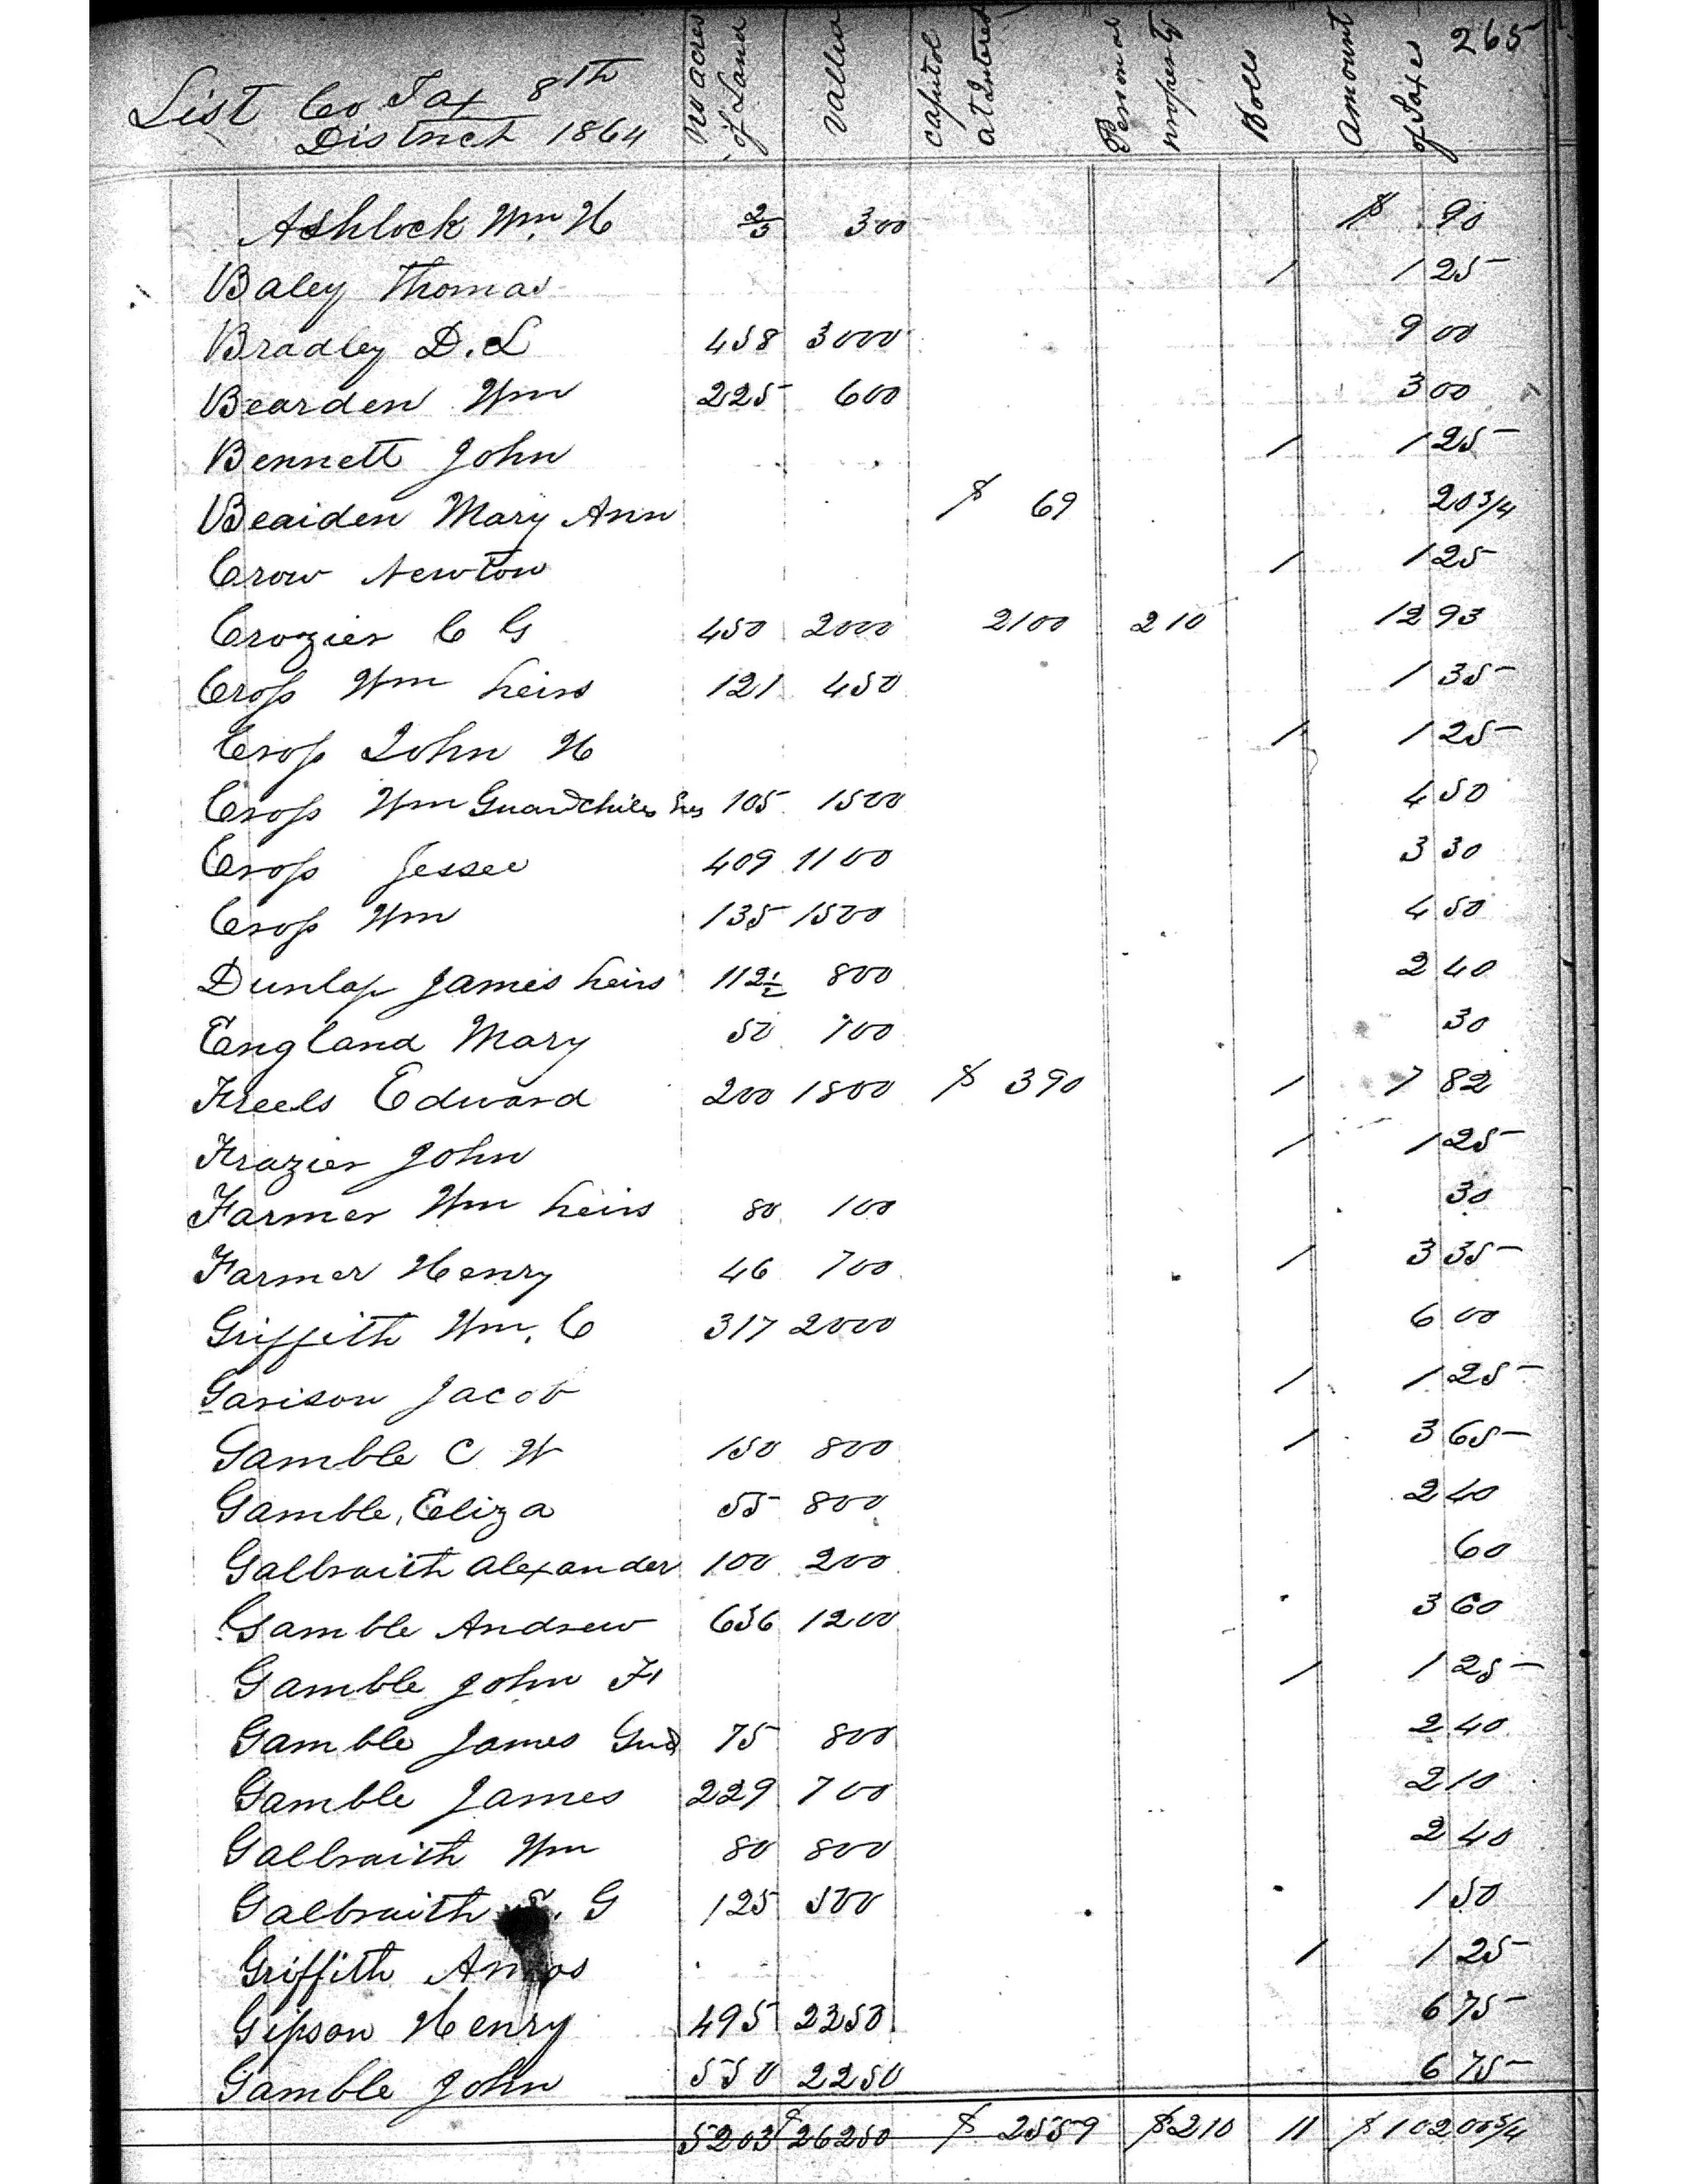 265
List Co Tax 8th
District 1864
No acres of Land
Vallue
Capitol at Interest
Personal property
Polls
Amount of Taxes
Ashlock Wm. H 2/3 300 $ 90
Baley Thomas 1 1 25
Bradley D. L 458 3000 9 00
Bearden Wm 225 600 3 00
Bennett John 1 1 25
Beaiden Mary Ann $ 69 20 3/4
Crow Newton 1 1 25
Crozier C G 450 2000 2100 210 12 93
Cross Wm heirs 121 450 1 35
Cross John H 1 1 25
Cross Wm Guard 105 1500 4 50
Cross Jessee 409 1100 3 30
Cross Wm 135 1500 4 50
Dunlap James heirs 112 1/2 800 2 40
England Mary 50 100 30
Freels Edward 200 1800 $ 390 1 7 82
Frazier John 1 1 25
Farmer Wm heirs 80 100 30
Farmer Henry 46 700 1 3 35
Griffith Wm. C 317 2000 6 00
Garison Jacob 1 1 25
Gamble C W 150 800 1 3 65
Gamble, Eliza 55 800 2 40
Galbraith Alexander 100 200 60
Gamble Andrew 636 1200 3 60
Gamble John F 1 1 25
Gamble James Gud 75 800 2 40
Gamble James 229 700 2 10
Galbraith Wm 80 800 2 40
Galbraith G 125 500 1 50
Griffith Amos 1 1 25
Gipson Henry 495 2250 6 75
Gamble John 550 2250 6 75
5203 $26250 $ 2559 $210 11 $102 05 3/4